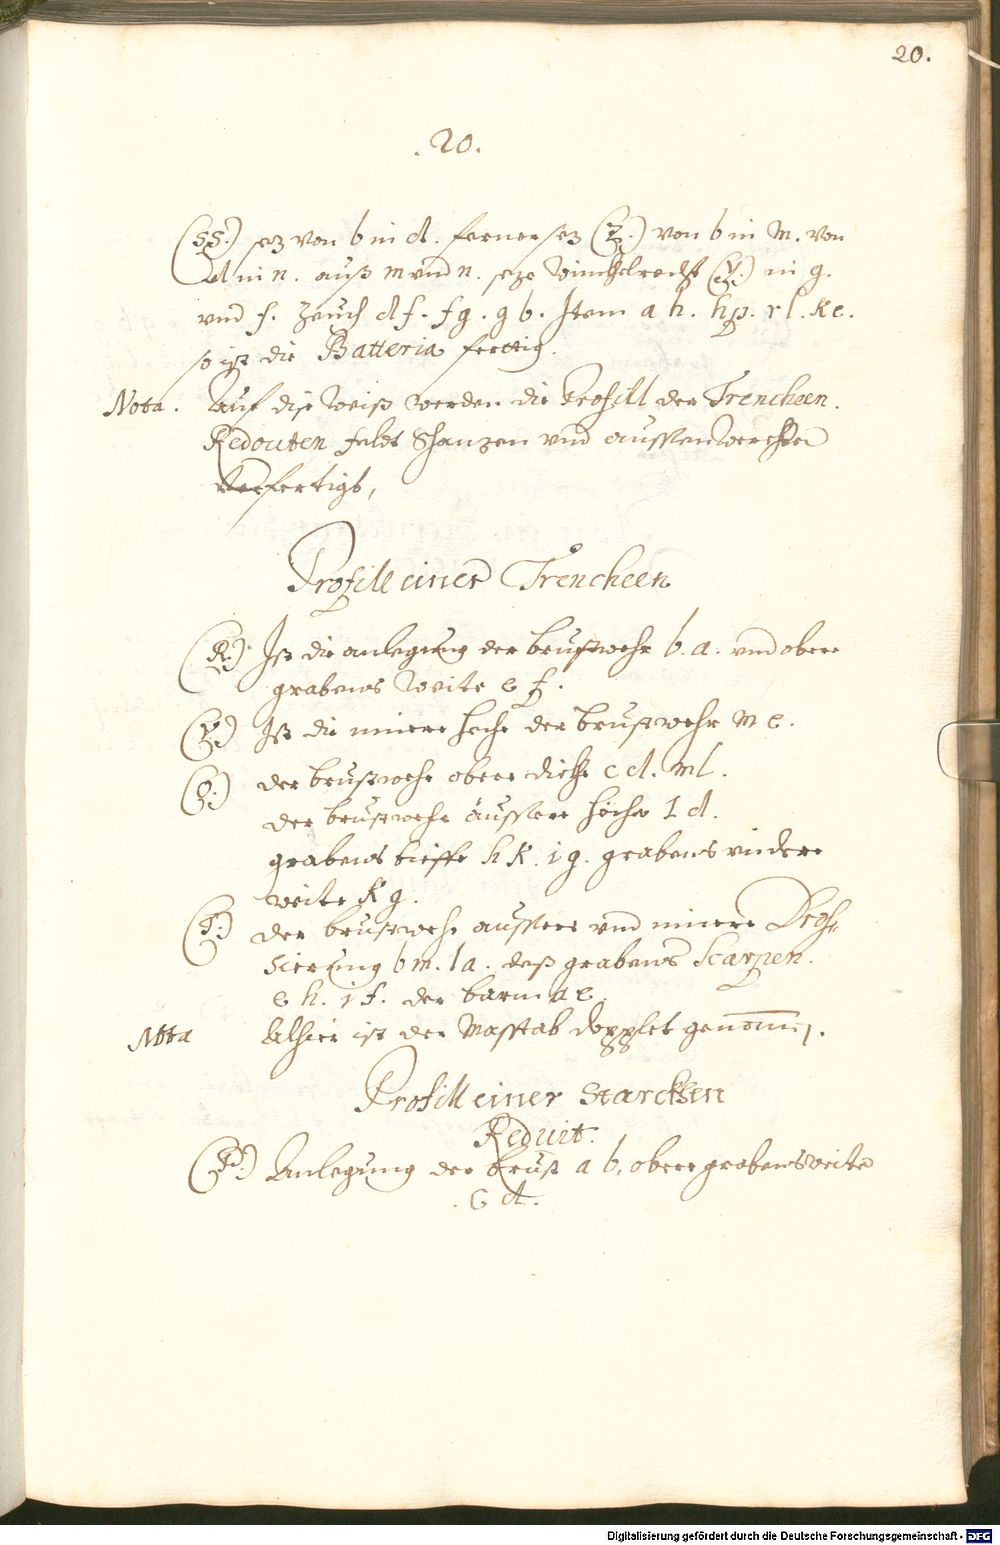 20.
. 20.
(SS.) sez von b in d. ferner sez (Z.) von b in m. von
d in n. auß m vnd n. seze Winckhelrecht (Y.) in g.
vnd f. Zeuch d f. f g. g b. Item a h. h p. r l. k e.
so ist die Batteria fertig.
Nota. Auf dise Weiß werden die Profill der Trencheen.
Redouten feldt Schanzen vnd aussenwerckher
Verfertigt,
Profill einer Trencheen
(R.) Ist die anlegung der brustwehr b. a. vnd obere
grabens Weite e f.
(V.) Ist die innere höche der brustwehr m c.
(S.) der brustwehr obere dickhe c d. m l.
der brustwehr äussere höche l d.
grabens tieffe h k. i g. grabens vndere
weite k g.
(T.) der brustwehr aussere vnd innere Dros-
sierung b m. l a. deß grabens Scarpen.
e h. i f. der barm a e.
Nota Alhier ist der Masstab dopplet genomen.
Profill einer Starckhen
Reduit.
Anlegung der brust a b, obere grabensweite
. c d.
Digitalisierung gefördert durch die Deutsche Forschungsgemeinschaft - DFG